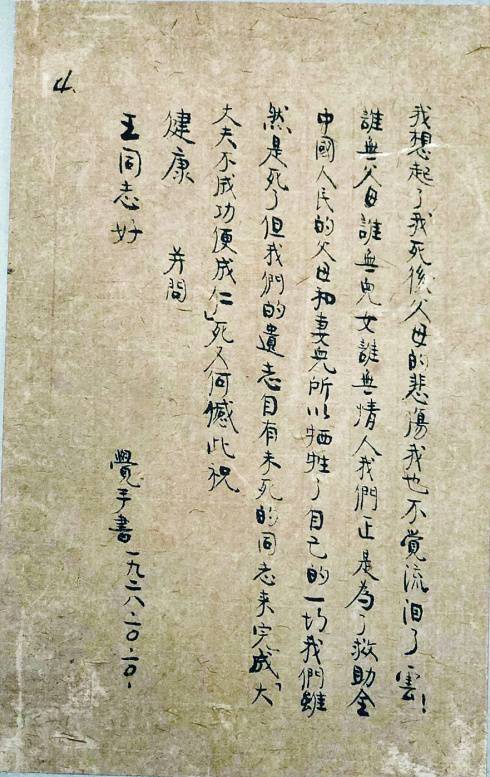 我想起了我死後父母的悲傷我也不覺流泪了雲！
誰無父母誰無兒女誰無情人我們正是為了救助全
中國人民的父母和妻兒所以牺牲了自己的一切我們雖
然是死了但我們的遺志自有未死的同志来完成「大
丈夫不成功便成仁」死又何憾此祝
健康 并問
王同志好
覺手書一九二八.一〇.一〇.
4.